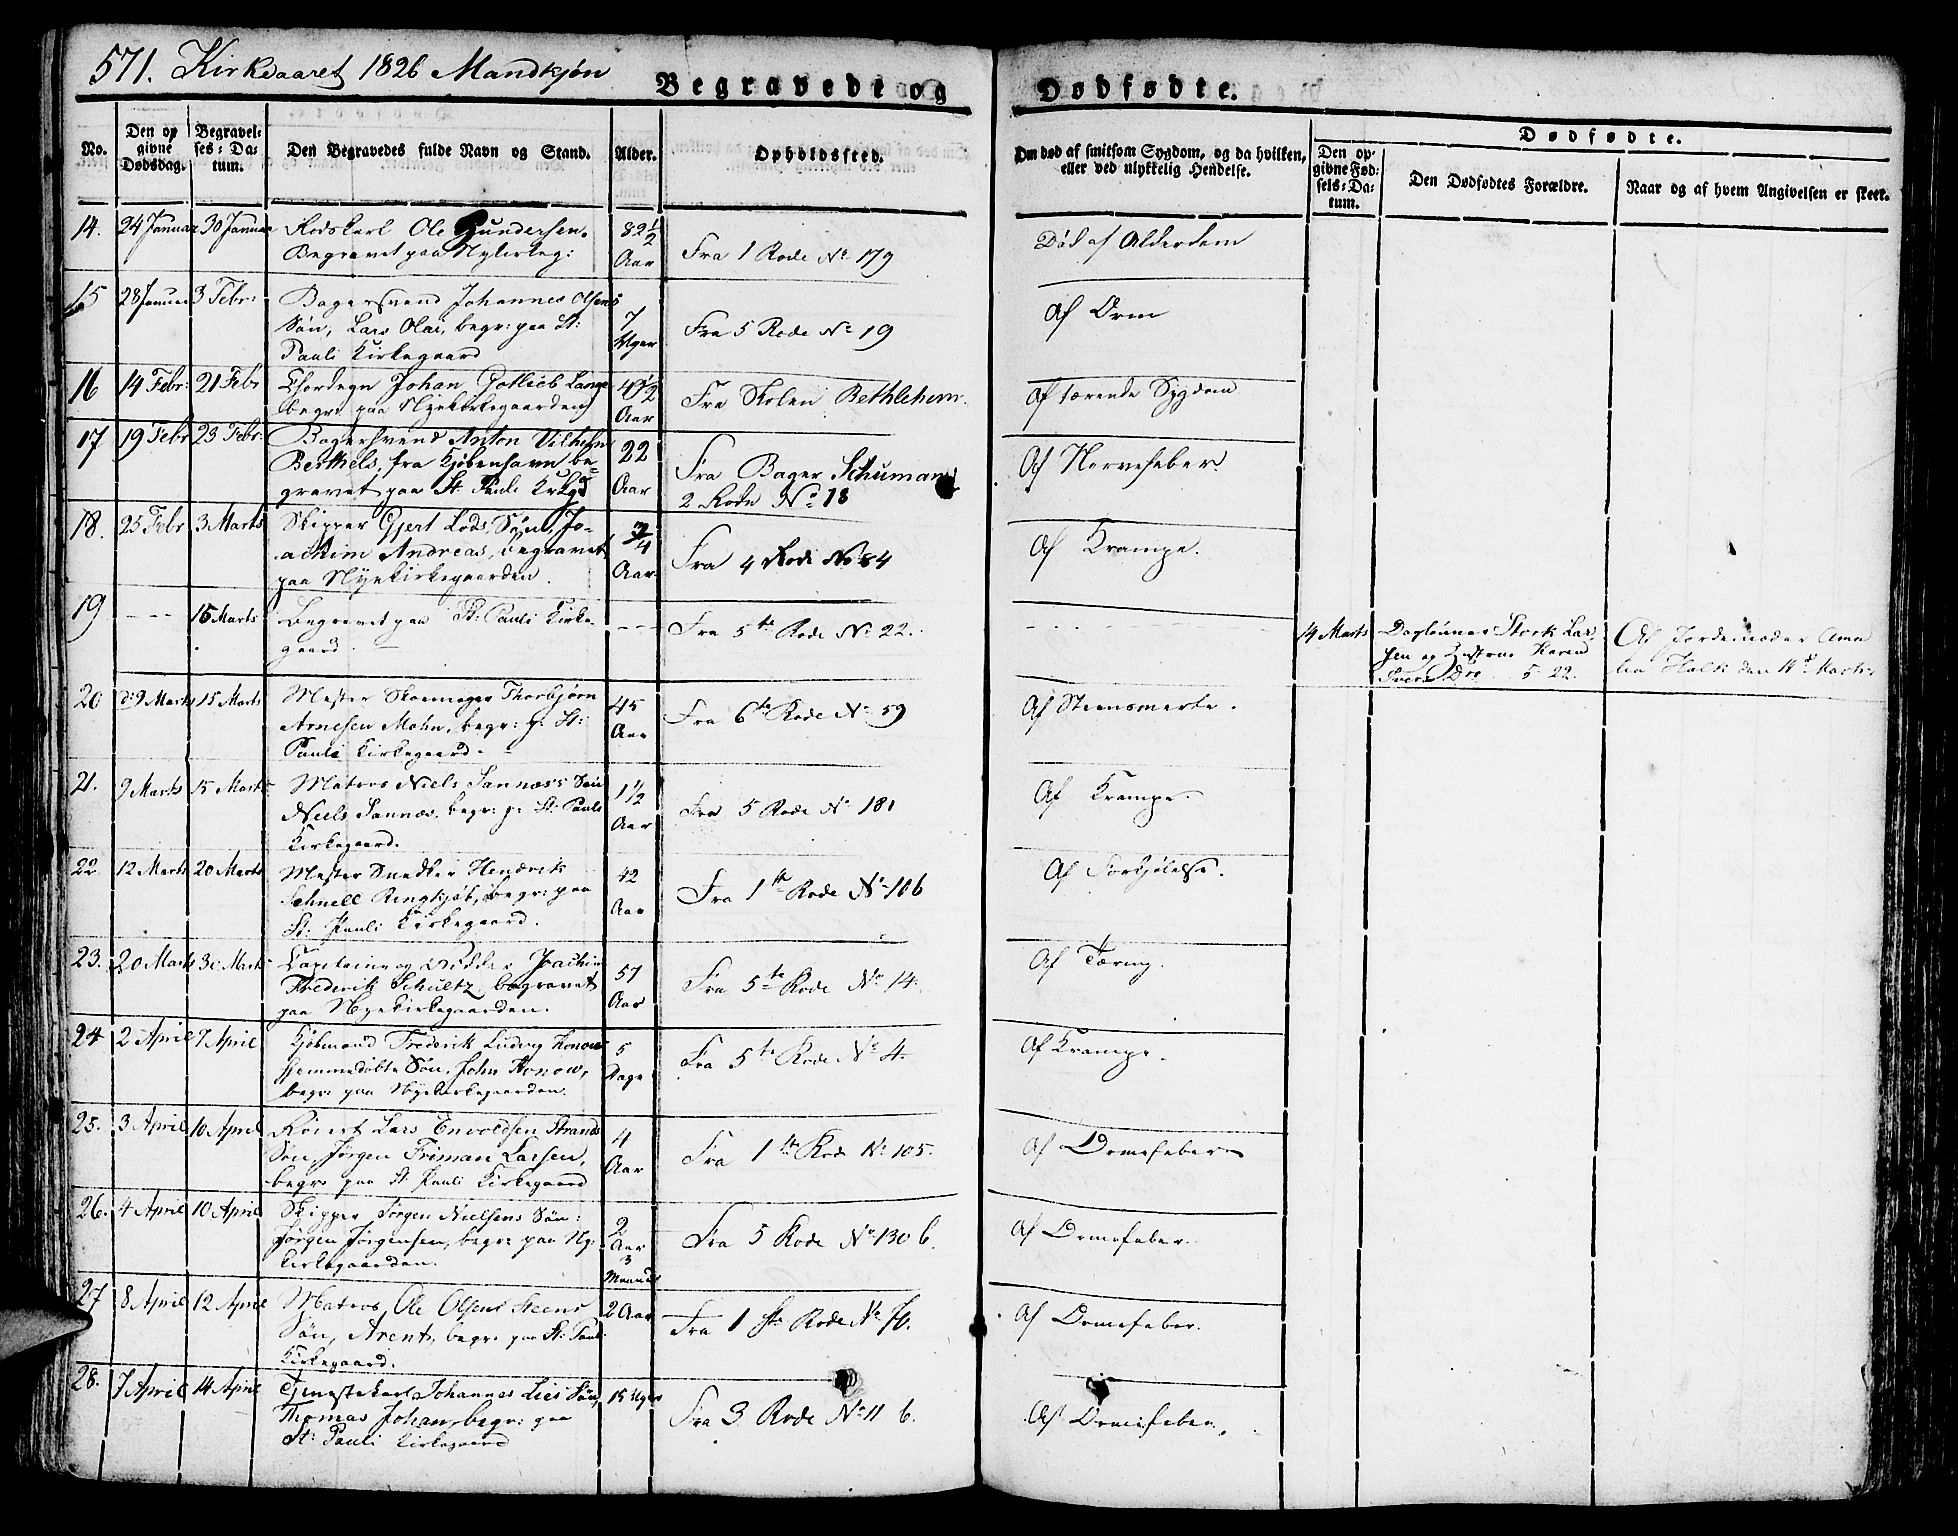 571. Kirkeaaret 1826 Mandkjøn
Begravede og Dødfødte.
No. | Den opgivne Dødsdag. | Begravelses-Datum. | Den Begravedes fulde Navn og Stand. | Alder. | Opholdssted. | Om død af smitsom Sygdom, og da hvilken, eller ved ulykkelig Hendelse. | Dødfødte. | Den opgivne Fødsels-Datum. | Den Dødfødtes Forældre. | Naar og af hvem Angivelsen er skeet.
14. 24 Januar 30 Januar Rodskarl Ole Gundersen. 82 1/2
Begravet paa Nykirkeg: Aar Fra 1 Rode No 179 Død af Alderdom
15 28 Januar 3 Febr: Bagersvend Johannes Olsens
Søn, Lars Olai, begr: paa St: 7 Fra 5 Rode No 19 Af Orm
Pauli Kirkegaard Uger
16 14 Febr: 21 Febr Chordegn Johan Gotlieb Lange 40 1/2
begr: paa Nyekirkegaarden Aar Fra Skolen Bethlehem. Af tærende Sygdom
17 19 Febr 23 Febr: Bagersvend Anton Vilhelm
Berthels, fra Kjøbenhavn be- 22 Fra Bager Schuman Af Nervefeber.
gravet paa St. Pauli Kirkgd Aar 2 Rode No 18
18. 25 Febr 3 Marts Skipper Gjert Lods Søn, Jo-
achim Andreas, begravet 3/4 Fra 4 Rode No 84 Af Krampe.
paa Nyekirkegaarden. Aar
19 --- 16 Marts Begravet paa St: Pauli Kirke- --- Fra 5te Rode No 22. 14 Marts Dagleiner Stork Lar- Af Jordemoder Ama
gaard. sen og Hustrue Karen lia Holk den 14de Marts.
5 22.
20 d: 9 Marts 15 Marts Mester Skomager Thorbjørn 45
Arnesen Mohn, begr: p: St: Aar Fra 6te Rode No 59 Af Steensmerte.
Pauli Kirkegaard.
21. 9 Marts 15 Marts Matros Niels Sannæss Søn 1 1/2
Niels Sannæs, begr: p: St: Pauli Aar Fra 5 Rode No 181 Af Krampe.
Kirkegaard.
22. 12 Marts 20 Marts Mester Snedker Hendrik 42
Schnell Ringkjøb, begr: paa Aar Fra 1te Rode No 106 Af Forkjølelse.
St: Pauli Kirkegaard.
23. 20 Marts 30 Marts Capitaine og Ridder Joachim 57
Frederik Schultz, begravet Aar Fra 5te Rode No 14. Af Tæring.
paa Nyekirkegaarden.
24 2 April 7 April Kjøbmand Frederik Ludvig Konows 5
hjemmedøbte Søn, John Konow, Dage Fra 5te Rode No 4. Af Krampe.
begr: paa Nyekirkegaarden.
25. 3 April 10 April Røiert Lars Envoldsen Strands 4
Søn, Jørgen Friman Larsen, Aar Fra 1te Rode No 105. Af Ormefeber
begr: paa St: Pauli Kirkegaard
26. 4 April 10 April Skipper Jørgen Nielsens Søn: 2
Jørgen Jørgensen, begr: paa Ny- Aar Fra 5 Rode No 130 b. Af Ormefeber.
kirkegaarden. 3 Maaned
27 8 April 12 April Matros Ole Olsens Steens 2 Aar
Søn, Arent, begr: paa St: Pauli Fra 1ste Rode No 76. Af Ormefeber.
Kirkegaard.
28. 7 April 14 April Tjenestekarl Johannes Lies Søn, 15 Uger
Thomas Johan, begr: paa Fra 3 Rode No 11 b. Af Ormefeber.
St: Pauli Kirkegaard